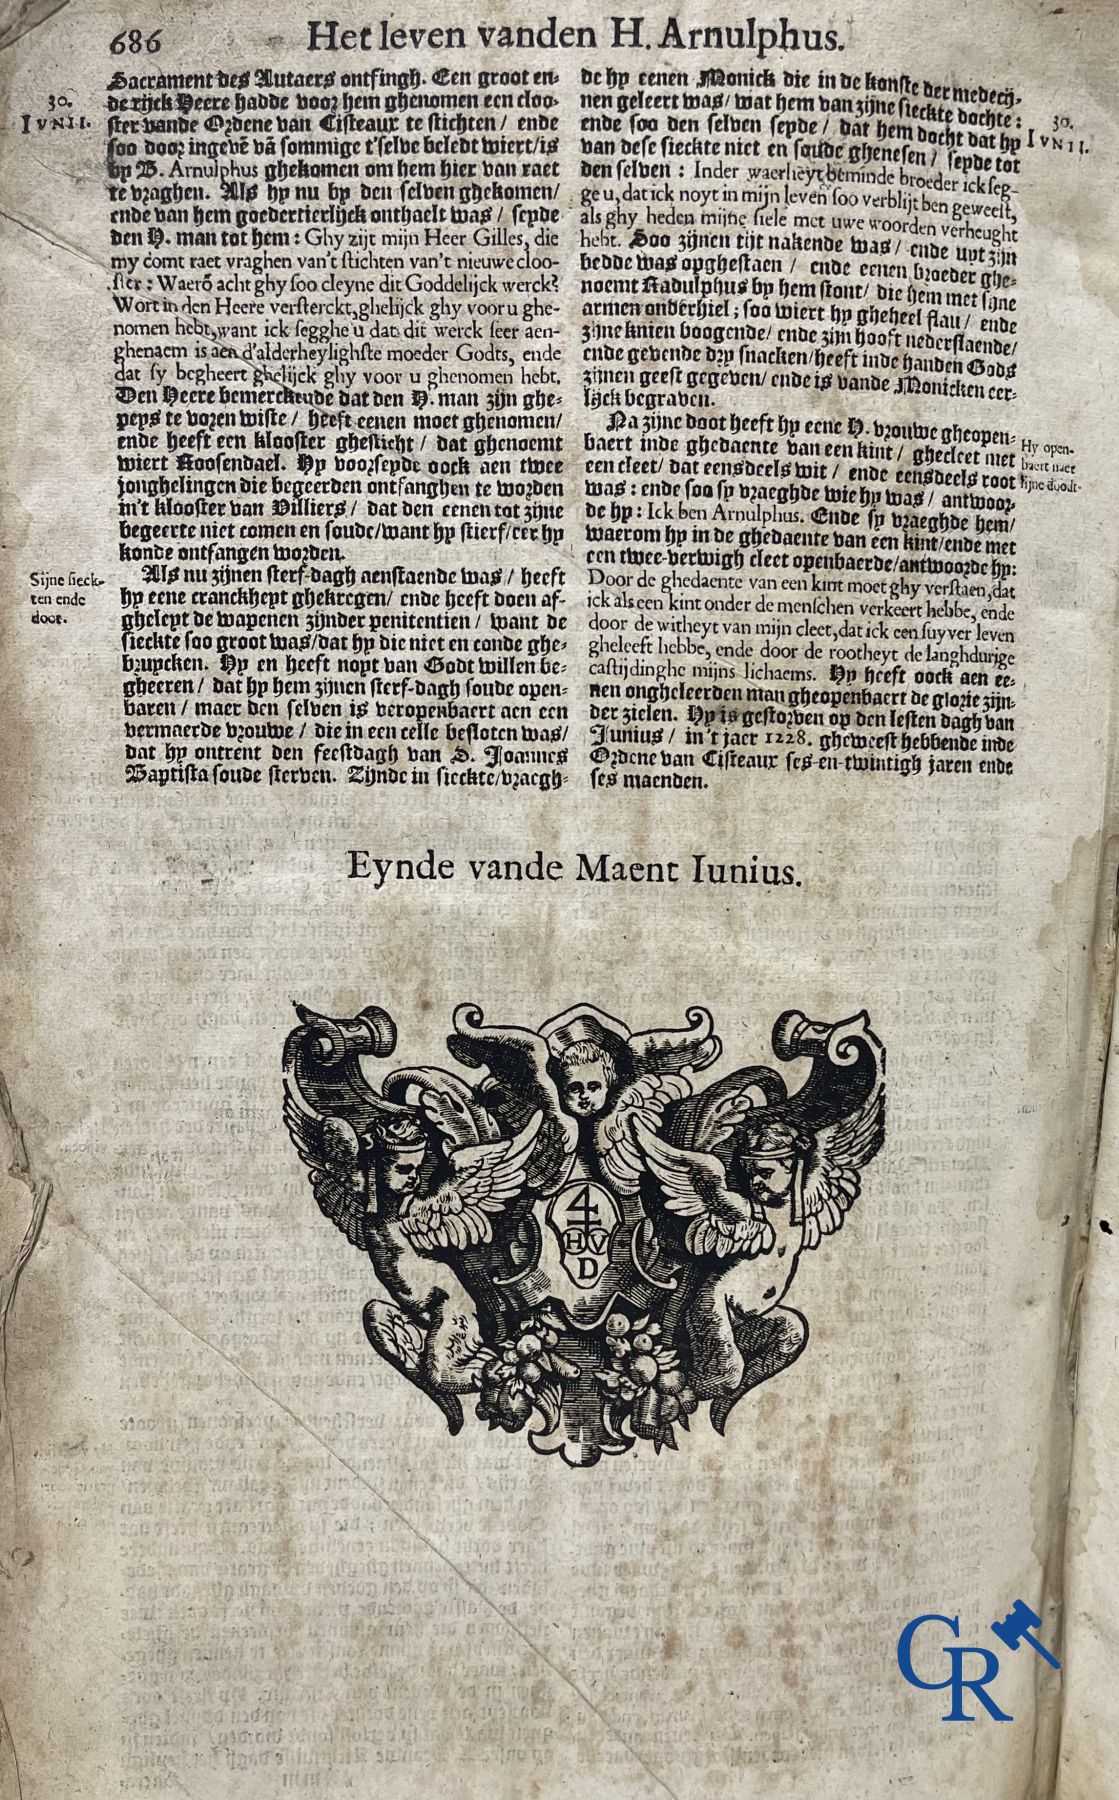 686
Het leven vanden H. Arnulphus.
30.
IVNII.
Sacrament des Autaers ontfingh. Een groot en-
de rijck Heere hadde voor hem ghenomen een cloo-
ster vande Ordene van Cisteaux te stichten / ende
soo door ingevē vā sommige t'selve beledt wiert/is
by B. Arnulphus ghekomen om hem hier van raet
te vraghen. Als hy nu by den selven ghekomen/
ende van hem goedertierlijck onthaelt was / seyde
den H. man tot hem : Ghy zijt mijn Heer Gilles, die
my comt raet vraghen van't stichten van't nieuwe cloo-
ster : Waerō acht ghy soo cleyne dit Goddelijck werck?
Wort in den Heere versterckt, ghelijck ghy voor u ghe-
nomen hebt, want ick segghe u dat dit werck seer aen-
ghenaem is aen d'alderheylighste moeder Godts, ende
dat sy begheert ghelijck ghy voor u ghenomen hebt.
Den Heere bemerckende dat den H. man zijn ghe-
peys te voren wiste / heeft eenen moet ghenomen/
ende heeft een klooster ghesticht / dat ghenoemt
wiert Roosendael. Hy voorseyde oock aen twee
jonghelingen die begeerden ontfanghen te worden
in't klooster van Villiers / dat den eenen tot zijne
begeerte niet comen en soude/want hy stierf/eer hy
konde ontfangen worden.
Sijne sieck-
ten ende
doot.
Als nu zijnen sterf-dagh aenstaende was / heeft
hy eene cranckheyt ghekregen/ ende heeft doen af-
gheleyt de wapenen zijnder penitentien / want de
sieckte soo groot was/dat hy die niet en conde ghe-
bruycken. Hy en heeft noyt van Godt willen be-
gheeren / dat hy hem zijnen sterf-dagh soude open-
baren / maer den selven is veropenbaert aen een
vermaerde vrouwe / die in een celle besloten was/
dat hy ontrent den feestdagh van S. Joannes
Baptista soude sterven. Zijnde in sieckte/vraegh-
de hy eenen Monick die in de konste der medecij-
nen geleert was/ wat hem van zijne sieckte dochte :
ende soo den selven seyde / dat hem docht dat hy
van dese sieckte niet en soude ghenesen / seyde tot
den selven : Inder waerheyt beminde broeder ick seg-
ge u, dat ick noyt in mijn leven soo verblijt ben geweest,
als ghy heden mijne siele met uwe woorden verheught
hebt. Soo zijnen tijt nakende was / ende uyt zijn
bedde was opghestaen / ende eenen broeder ghe-
noemt Radulphus by hem stont/ die hem met sijne
armen onderhiel ; soo wiert hy gheheel flau / ende
zijne knien boogende/ ende zijn hooft nederslaende/
ende gevende dry snacken/heeft inde handen Gods
zijnen geest gegeven/ ende is vande Monicken eer-
lijck begraven.
30.
IVNII.
Na zijne doot heeft hy eene H. vrouwe gheopen-
baert inde ghedaente van een kint / ghecleet met
een cleet/ dat eensdeels wit / ende eensdeels root
was : ende soo sy vraeghde wie hy was / antwoor-
de hy : Ick ben Arnulphus. Ende sy vraeghde hem/
waerom hy in de ghedaente van een kint/ende met
een twee-verwigh cleet openbaerde/antwoorde hy:
Door de ghedaente van een kint moet ghy verstaen, dat
ick als een kint onder de menschen verkeert hebbe, ende
door de witheyt van mijn cleet, dat ick een suyver leven
gheleeft hebbe, ende door de rootheyt de langhdurige
castijdinghe mijns lichaems. Hy heeft oock aen ee-
nen onghcleerden man gheopenbaert de glorie zijn-
der zielen. Hy is gestorven op den lesten dagh van
Junius / in't jaer 1228. gheweest hebbende inde
Ordene van Cisteaux ses-en-twintigh jaren ende
ses maenden.
Hy open-
baert naer
sijne doodt.
Eynde vande Maent Iunius.
4
HV
D
CR